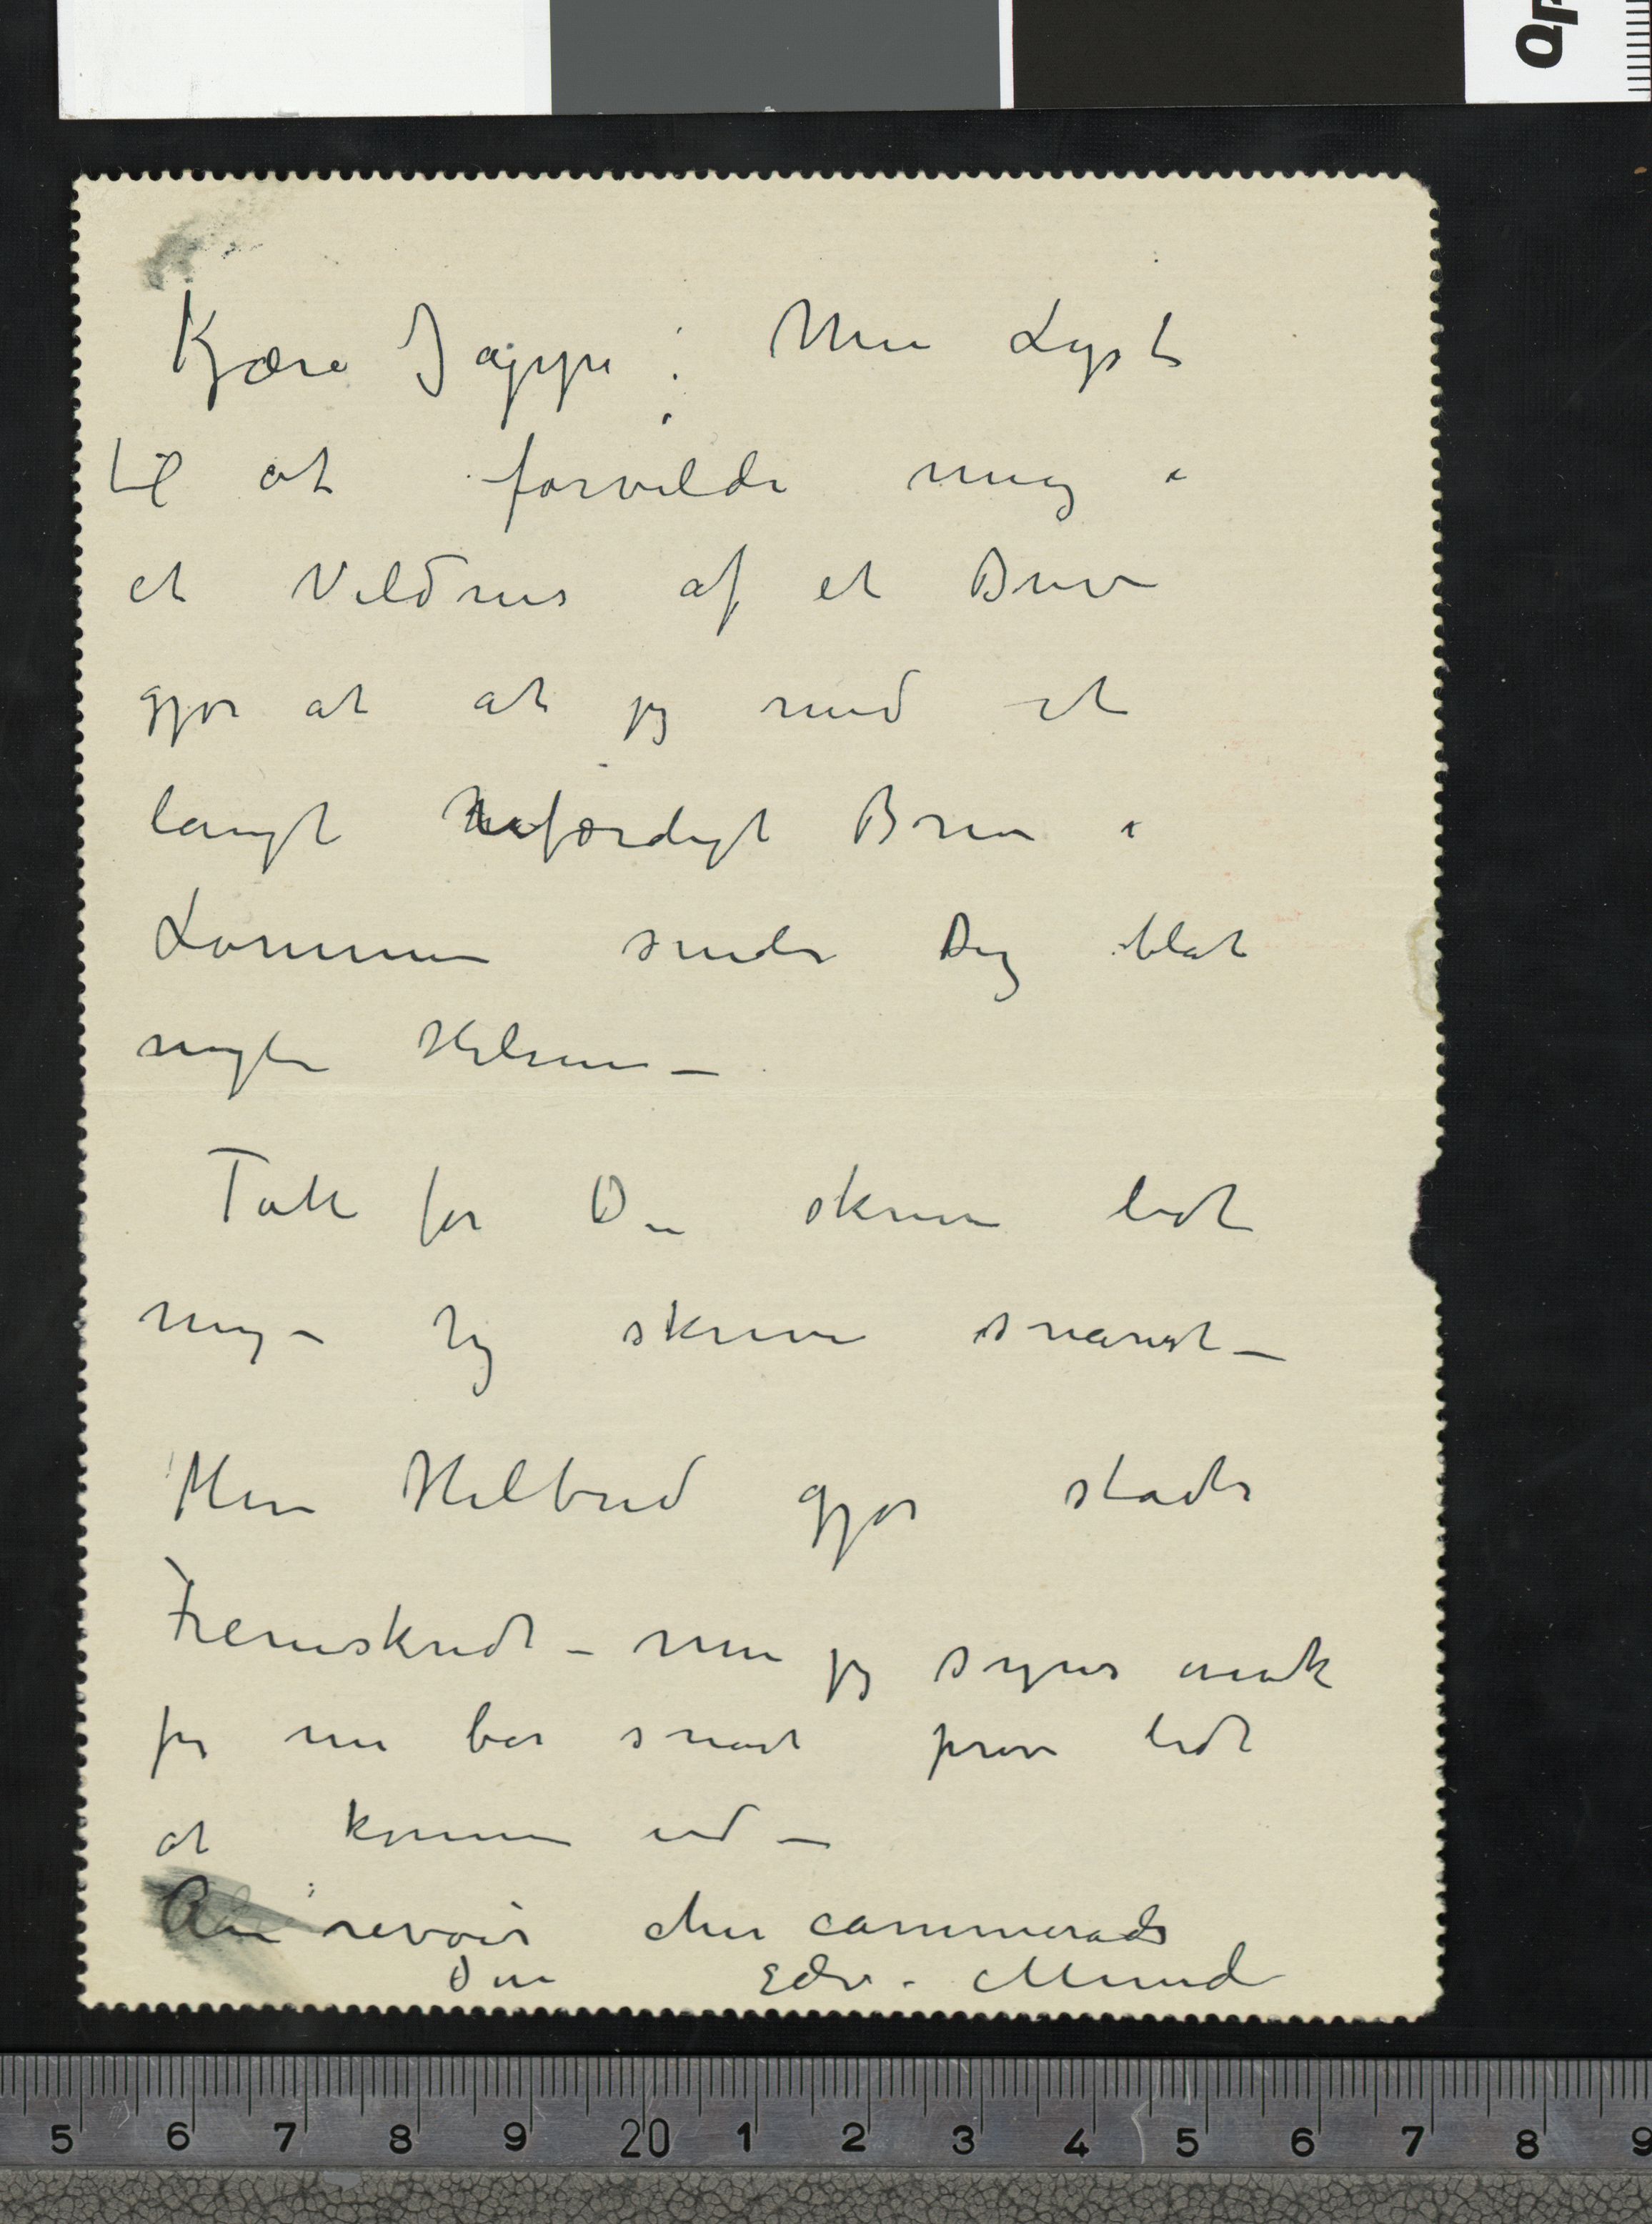 Kjære Jappe! Min Lyst
til at forvilde mig i
et Vildnis af et Brev
gjør at at jeg med et
langt ufærdigt Brev i
Lommen sender Dig blot
nogle Hilsener –
Takk for Du skriver lidt
mig – Jeg skriver snarest –
Min Helbred gjør stadig
Fremskridt – men jeg synes nok
jeg nu bør snart prøve lidt
at komme ud –
Au revoir cher cammerade
Din Edv. Munch
5 6 7 8 9 20 1 2 3 4 5 6 7 8 9